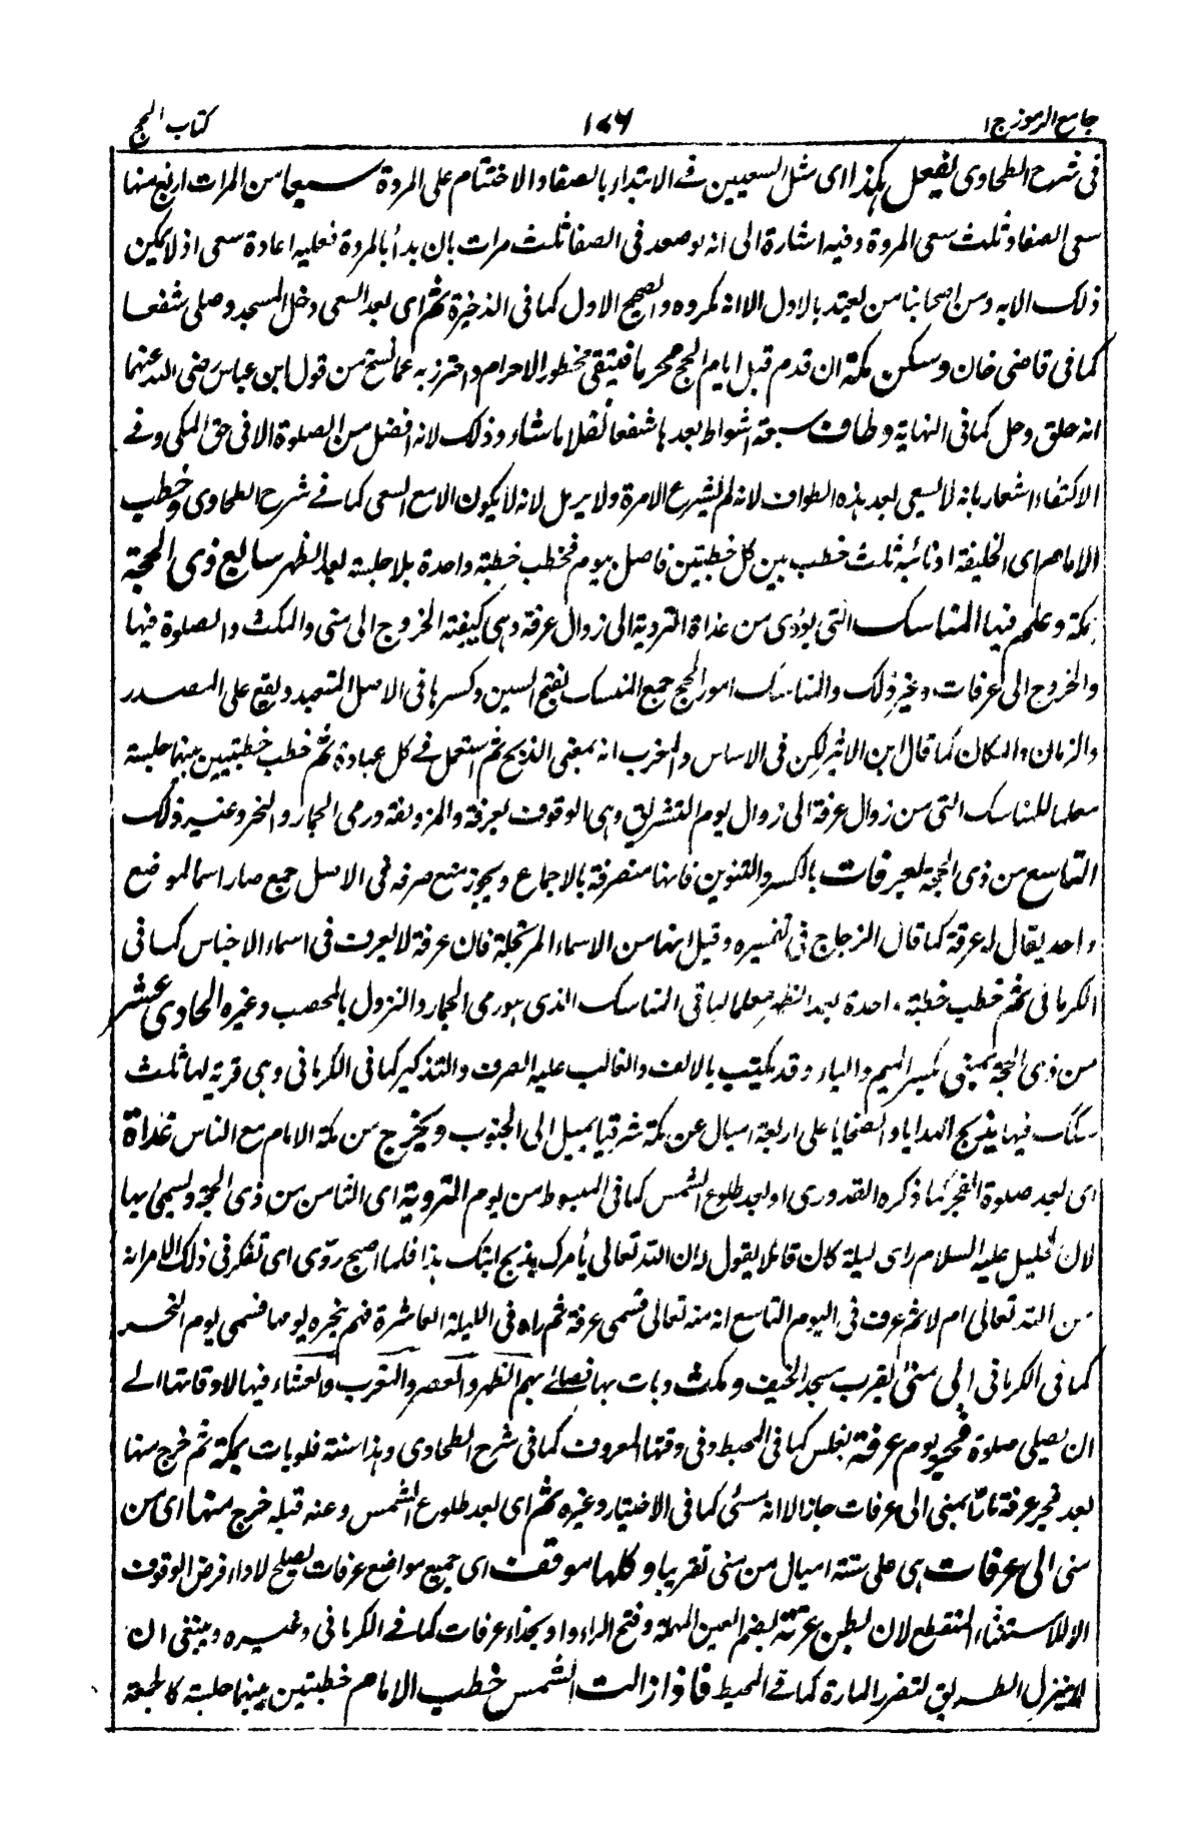 جامع الرموز ج١
١٧٦
كتاب الحج
فى شرح الطحاوى يفعل هكذا اى مثل السعيين فى الابتداء بالصفا والاختتام على المروة سبعا من المرات اربع منها
سعى الصفا وثلث سعى المروة وفيه اشارة الى انه لو صعد فى الصفا ثلث مرات بان بدأ بالمروة فعليه اعادة سعى اذ لا يمكن
ذلك الا به ومن اصحابنا من يعتد بالاول الا انه مكروه والصحيح الاول كما فى الذخيرة ثم اى بعد السعى دخل المسجد وصلى شفعا
كما فى قاضى خان وسكن مكة ان قدم قبل ايام الحج محرما فيتقى محظور الاحرام واحترز به عما نسخ من قول ابن عباس رضى الله عنهما
انه حلق وحل كما فى النهاية وطاف سبعة اشواط بعدها شفعا نفلا ما شاء وذلك لانه افضل من الصلوة الا فى حق المكى وفى
الاكتفاء اشعار بانه لا يسعى بعد هذه الطواف لانه لم يشرع الا مرة ولا يرمل لانه لا يكون الا مع السعى كما فى شرح الطحاوى وخطب
الامام اى الخليفة او نائبه ثلث خطب بين كل خطبتين فاصل بيوم فخطب خطبة واحدة بلا جلسة بعد الظهر سابع ذى الحجة
بمكة وعلم فيها المناسك التى يؤدى من غداة التروية الى زوال عرفة وهى كيفية الخروج الى منى والمكث والصلوة فيها
والخروج الى عرفات وغير ذلك والمناسك امور الحج جمع المنسك بفتح السين وكسرها فى الاصل المتعبد ويقع على المصدر
والزمان والمكان كما قال ابن الاثير لكن فى الاساس والمغرب انه بمعنى الذبح ثم استعمل فى كل عبادة ثم خطب خطبتين بينهما جلسة
معلما للمناسك التى من زوال عرفة الى زوال يوم التشريق وهى الوقوف بعرفة والمزدلفة ورمى الجمار والنحر وغير ذلك
التاسع من ذى الحجة بعرفات بالكسر والتنوين فانها منصرفة بالاجماع ويجوز منع صرفه فى الاصل جمع صار اسما لموضع
واحد يقال له عرفة كما قال الزجاج فى تفسيره وقيل انها من الاسماء المرتجلة فان عرفة لا يعرف فى اسماء الاجناس كما فى
الكرمانى ثم خطب خطبة واحدة بعد الظهر معلما لباقى المناسك الذى هو رمى الجمار والنزول بالمحصب وغيره الحادى عشر
من ذى الحجة بمنى بكسر الميم والياء وقد يكتب بالالف والغالب عليه الصرف والتذكير كما فى الكرمانى وهى قرية لها ثلث
سكك فيها يذبح الهدايا والضحايا على اربعة اميال عن مكة شرقيا يميل الى الجنوب ويخرج من مكة الامام مع الناس غداة
اى بعد صلوة الفجر كما ذكره القدورى او بعد طلوع الشمس كما فى المبسوط من يوم التروية اى الثامن من ذى الحجة ويسمى بها
لان الخليل عليه السلام راى ليلة كان قائلا يقول له ان الله تعالى يأمرك بذبح ابنك هذا فلما اصبح روّى اى تفكر فى ذلك الامر انه
من الله تعالى ام لا ثم عرف فى اليوم التاسع انه منه تعالى فسمى عرفة ثم راه فى الليلة العاشرة فهم بنحره يومها فسمى يوم النحر
كما فى الكرمانى الى منى بقرب مسجد الخيف ومكث وبات بها فصلى بهم الظهر والعصر والمغرب والعشاء فيها لاوقاتها الى
ان يصلى صلوة فجر يوم عرفة بغلس كما فى المحيط وفى وقتها المعروف كما فى شرح الطحاوى وهذا سنة فلو بات بمكة ثم خرج منها
بعد فجر عرفة مارا بمنى الى عرفات جاز الا انه مسئ كما فى الاختيار وغيره ثم اى بعد طلوع الشمس وعنه قبله خرج منها اى من
منى الى عرفات هى على ستة اميال من منى تقريبا وكلها موقف اى جميع مواضع عرفات يصلح لاداء فرض الوقوف
الا للاستثناء المنقطع لان لبطن عرنة بضم العين المهملة وفتح الراء واد بحذاء عرفات كما فى الكرمانى وغيره وينبغى ان
لا ينزل الطريق لتضرر المارة كما فى المحيط فاذا زالت الشمس خطب الامام خطبتين بينهما جلسة كالجمعة